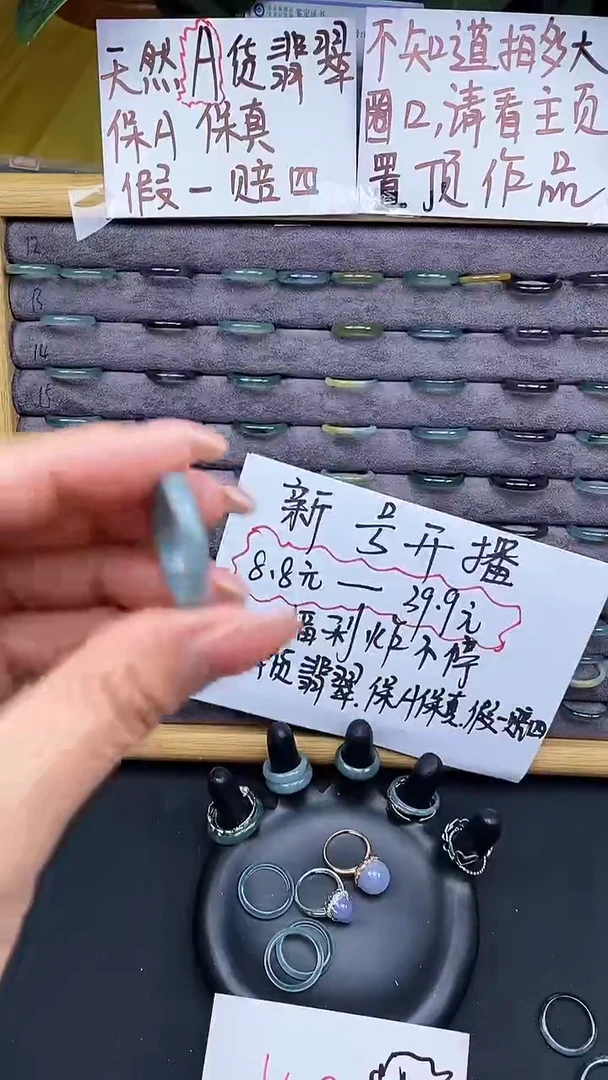 鉴定证书
天然A货翡翠
保A 保真
假一赔四
不知道拍多大
圈口,请看主页
置顶作品
12
13
14
15
新号开播
8.8元—39.9元
福利炸不停
货翡翠.保A保真.假一赔四